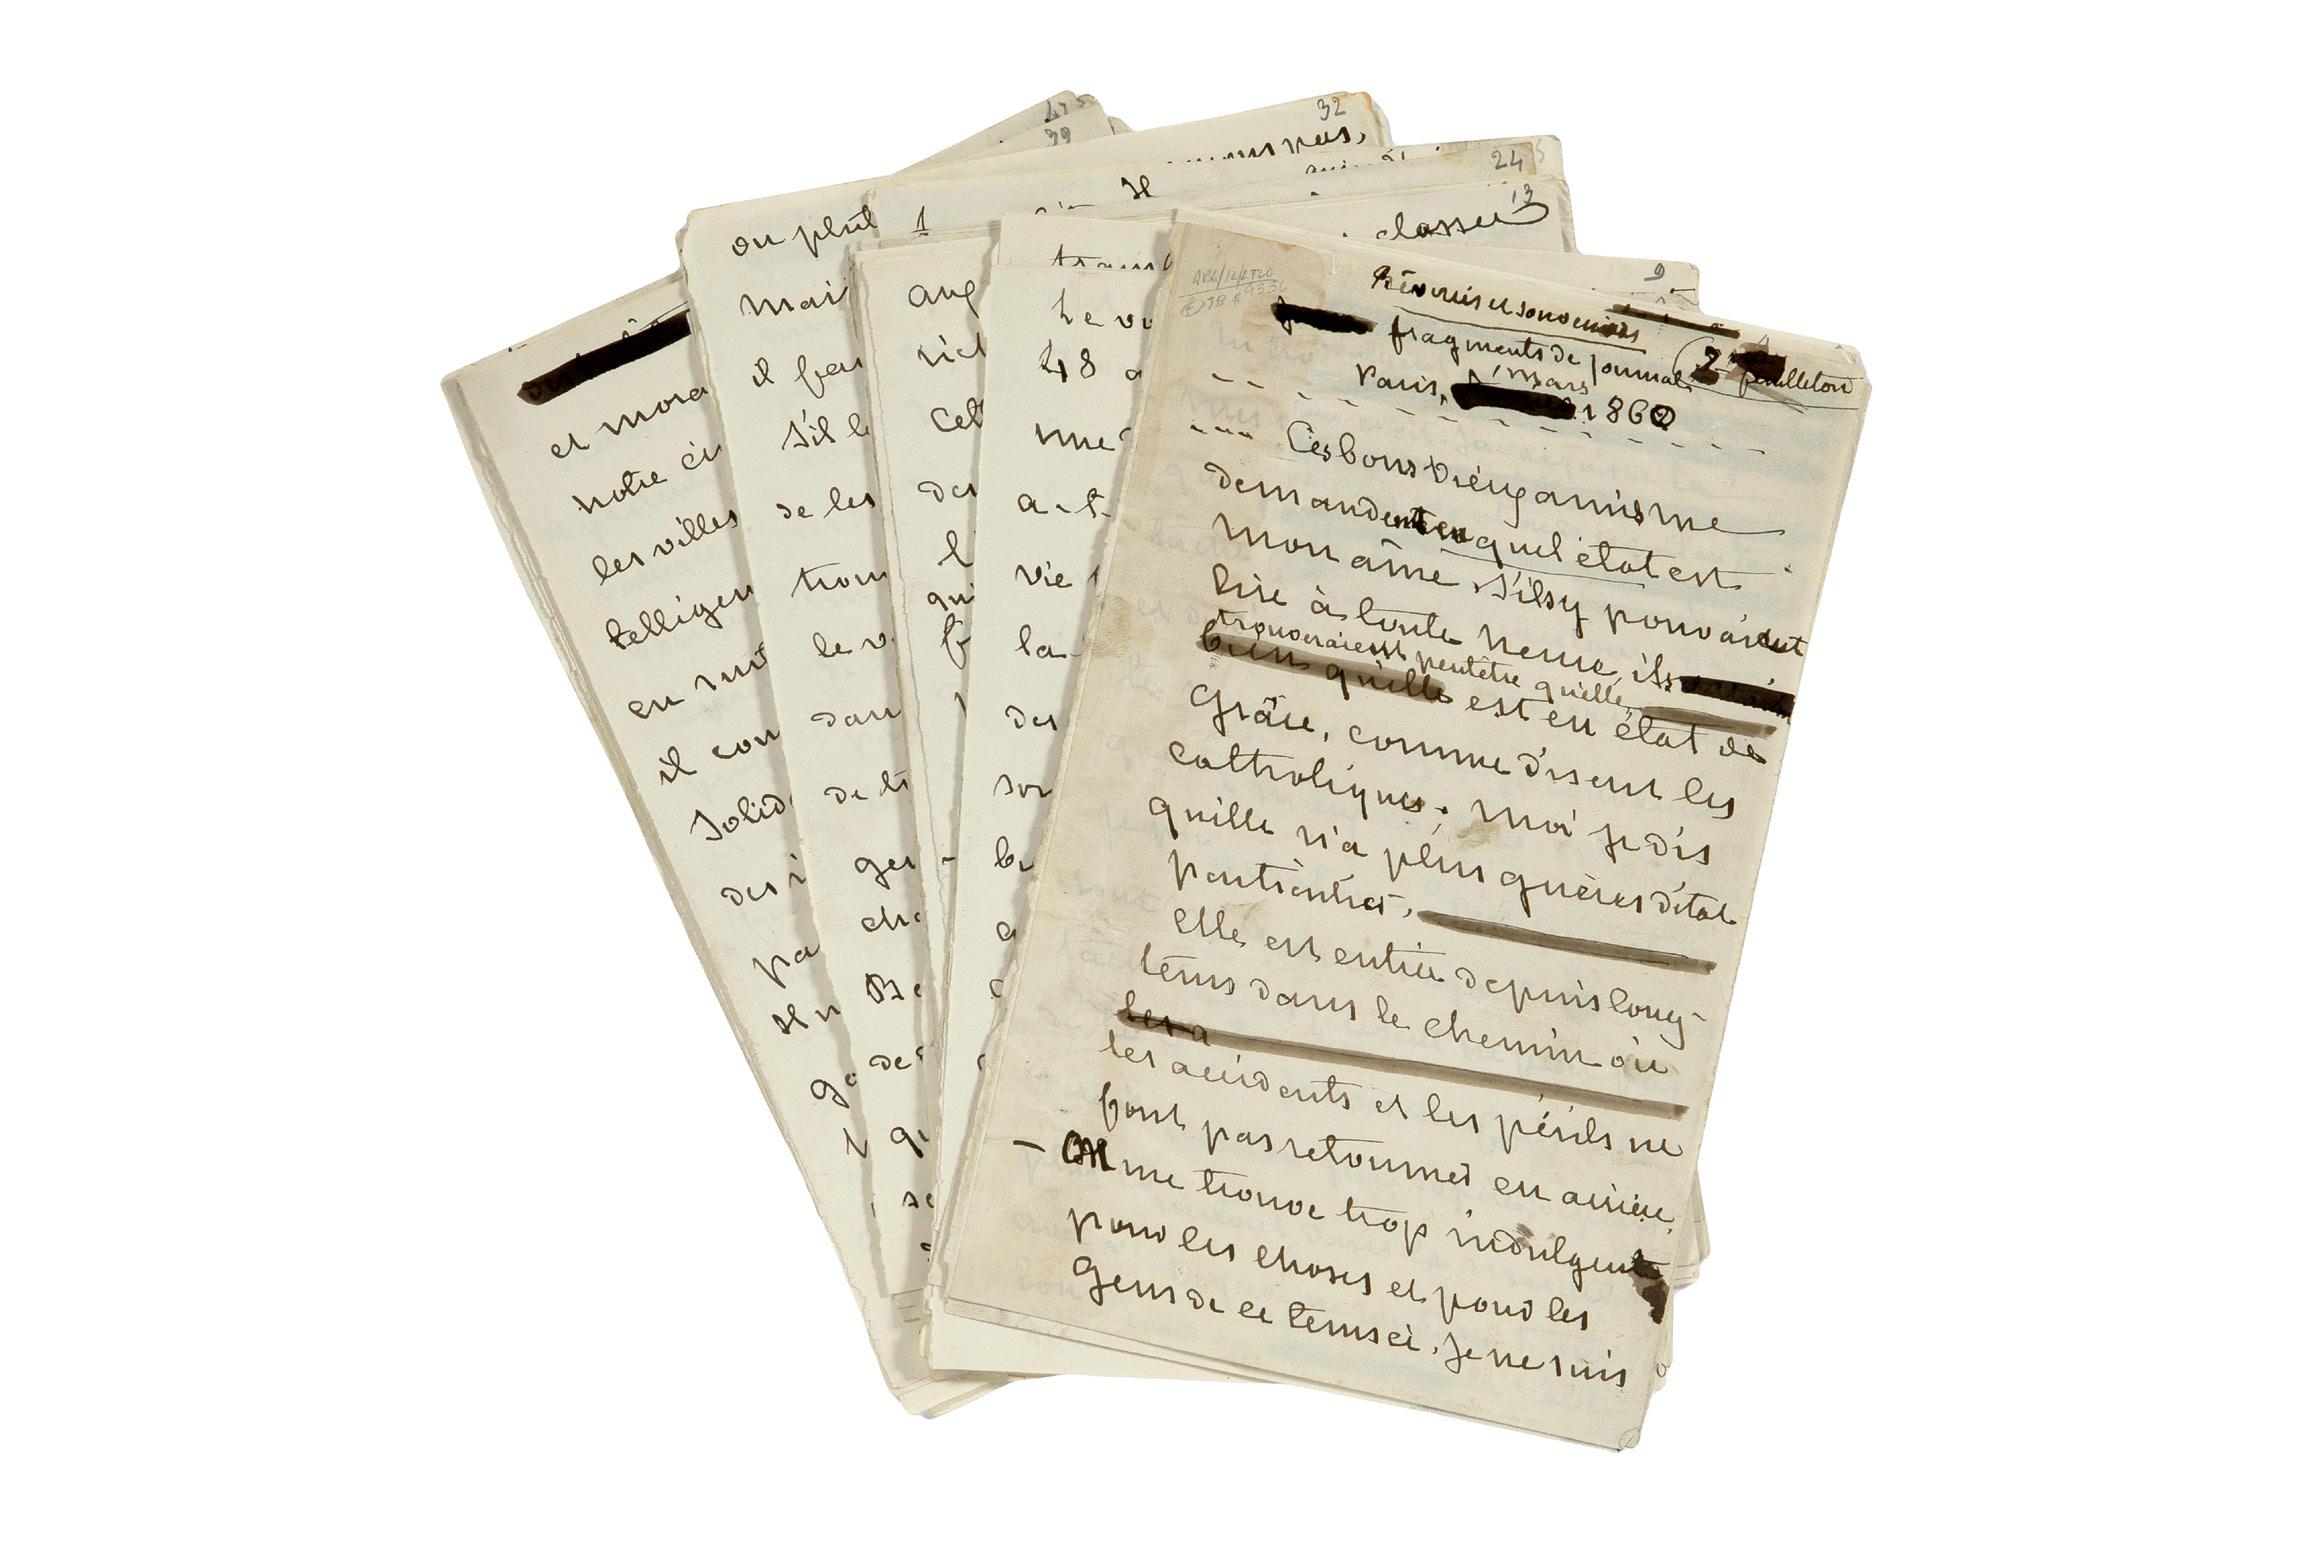 45
39
32
pas,
24
13
classer
9
Rêveries et souvenirs
fragments de journal
2e feuilleton
Paris, mars
1860
--- Ces bons vieux amis me
demandent en quel état est
mon âme. S'ils y pouvaient
lire à toute heure, ils
trouveraient peutêtre qu'elle
bien qu'elle est en état de
grâce, comme disent les
catholiques. Moi je dis
qu'elle n'a plus guères d'état
particulier.
Elle est entrée depuis long-
tems dans le chemin où
les a
les accidents et les périls ne
font pas retourner en arrière.
– On me trouve trop indulgent
pour les choses et pour les
gens de ce tems ci. Je ne suis
ou plut
mais
il fau
S'il le
de les
trou
le v
dans
de
ger
che
Be
de
qu
se
1
Il
aug
rich
Cet
des
l
qui
f
trans
Le vo
48 a
une
a-t-
vie
la
des
son
be
et mora
notre ci
les villes
telligen
en
il con
Solid
des i
pa
Il n